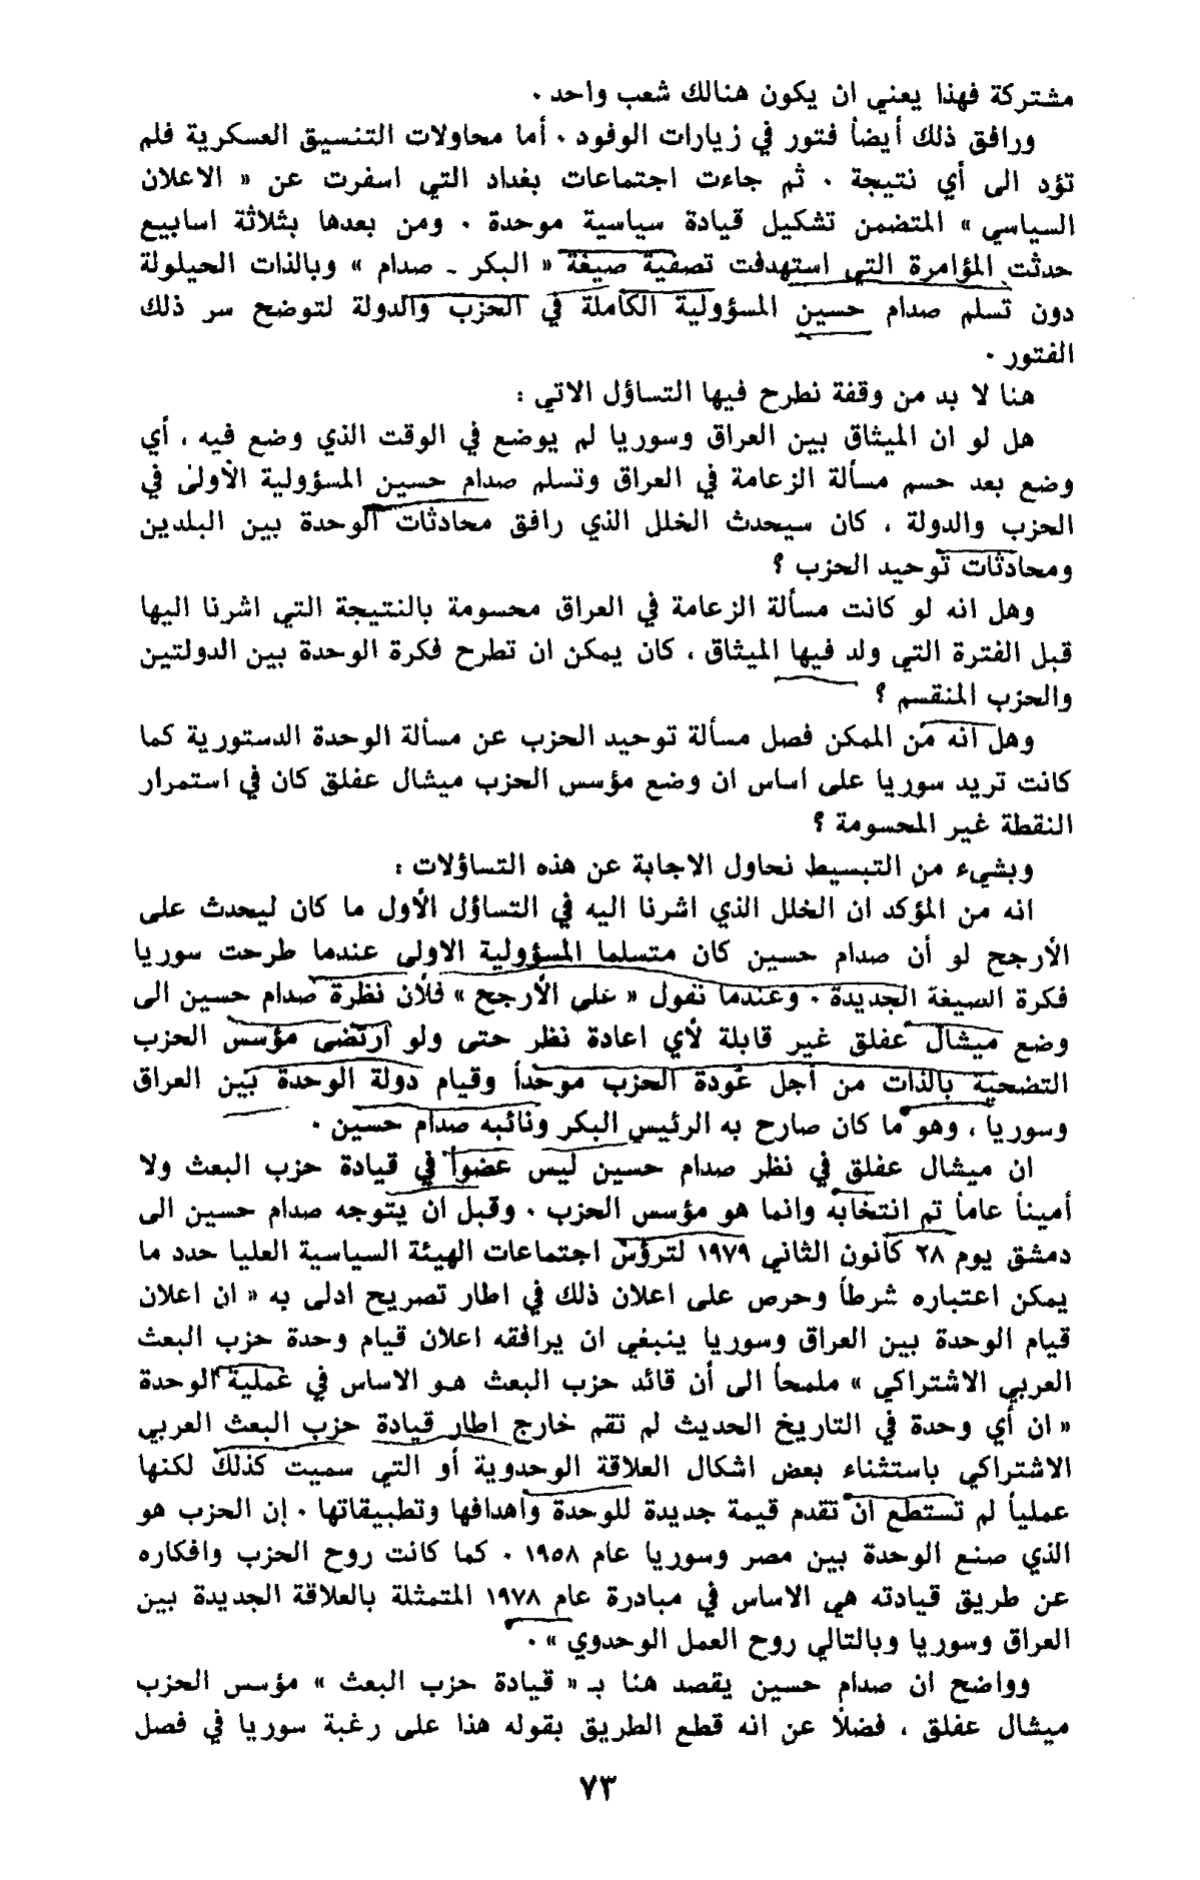 مشتركة فهذا يعني ان يكون هنالك شعب واحد .
ورافق ذلك أيضاً فتور في زيارات الوفود . أما محاولات التنسيق العسكرية فلم
تؤد الى أي نتيجة . ثم جاءت اجتماعات بغداد التي اسفرت عن « الاعلان
السياسي » المتضمن تشكيل قيادة سياسية موحدة . ومن بعدها بثلاثة اسابيع
حدثت المؤامرة التي استهدفت تصفية صيغة « البكر ـ صدام » وبالذات الحيلولة
دون تسلم صدام حسين المسؤولية الكاملة في الحزب والدولة لتوضح سر ذلك
الفتور .
هنا لا بد من وقفة نطرح فيها التساؤل الاتي :
هل لو ان الميثاق بين العراق وسوريا لم يوضع في الوقت الذي وضع فيه ، أي
وضع بعد حسم مسألة الزعامة في العراق وتسلم صدام حسين المسؤولية الأولى في
الحزب والدولة ، كان سيحدث الخلل الذي رافق محادثات الوحدة بين البلدين
ومحادثات توحيد الحزب ؟
وهل انه لو كانت مسألة الزعامة في العراق محسومة بالنتيجة التي اشرنا اليها
قبل الفترة التي ولد فيها الميثاق ، كان يمكن ان تطرح فكرة الوحدة بين الدولتين
والحزب المنقسم ؟
وهل انه من الممكن فصل مسألة توحيد الحزب عن مسألة الوحدة الدستورية كما
كانت تريد سوريا على اساس ان وضع مؤسس الحزب ميشال عفلق كان في استمرار
النقطة غير المحسومة ؟
وبشيء من التبسيط نحاول الاجابة عن هذه التساؤلات :
انه من المؤكد ان الخلل الذي اشرنا اليه في التساؤل الأول ما كان ليحدث على
الأرجح لو أن صدام حسين كان متسلما المسؤولية الاولى عندما طرحت سوريا
فكرة الصيغة الجديدة . وعندما نقول « على الأرجح » فلأن نظرة صدام حسين الى
وضع ميشال عفلق غير قابلة لأي اعادة نظر حتى ولو ارتضى مؤسس الحزب
التضحية بالذات من أجل عودة الحزب موحداً وقيام دولة الوحدة بين العراق
وسوريا ، وهو ما كان صارح به الرئيس البكر ونائبه صدام حسين .
ان ميشال عفلق في نظر صدام حسين ليس عضواً في قيادة حزب البعث ولا
أميناً عاماً تم انتخابه وانما هو مؤسس الحزب . وقبل ان يتوجه صدام حسين الى
دمشق يوم ٢٨ كانون الثاني ١٩٧٩ لترؤس اجتماعات الهيئة السياسية العليا حدد ما
يمكن اعتباره شرطاً وحرص على اعلان ذلك في اطار تصريح ادلى به « ان اعلان
قيام الوحدة بين العراق وسوريا ينبغي ان يرافقه اعلان قيام وحدة حزب البعث
العربي الاشتراكي » ملمحاً الى أن قائد حزب البعث هو الاساس في عملية الوحدة
« ان أي وحدة في التاريخ الحديث لم تقم خارج اطار قيادة حزب البعث العربي
الاشتراكي باستثناء بعض اشكال العلاقة الوحدوية أو التي سميت كذلك لكنها
عملياً لم تستطع ان تقدم قيمة جديدة للوحدة واهدافها وتطبيقاتها . إن الحزب هو
الذي صنع الوحدة بين مصر وسوريا عام ١٩٥٨ . كما كانت روح الحزب وافكاره
عن طريق قيادته هي الاساس في مبادرة عام ١٩٧٨ المتمثلة بالعلاقة الجديدة بين
العراق وسوريا وبالتالي روح العمل الوحدوي » .
وواضح ان صدام حسين يقصد هنا بـ « قيادة حزب البعث » مؤسس الحزب
ميشال عفلق ، فضلاً عن انه قطع الطريق بقوله هذا على رغبة سوريا في فصل
٧٣